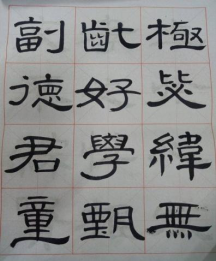 副德君童
齔好學甄
極毖緯無